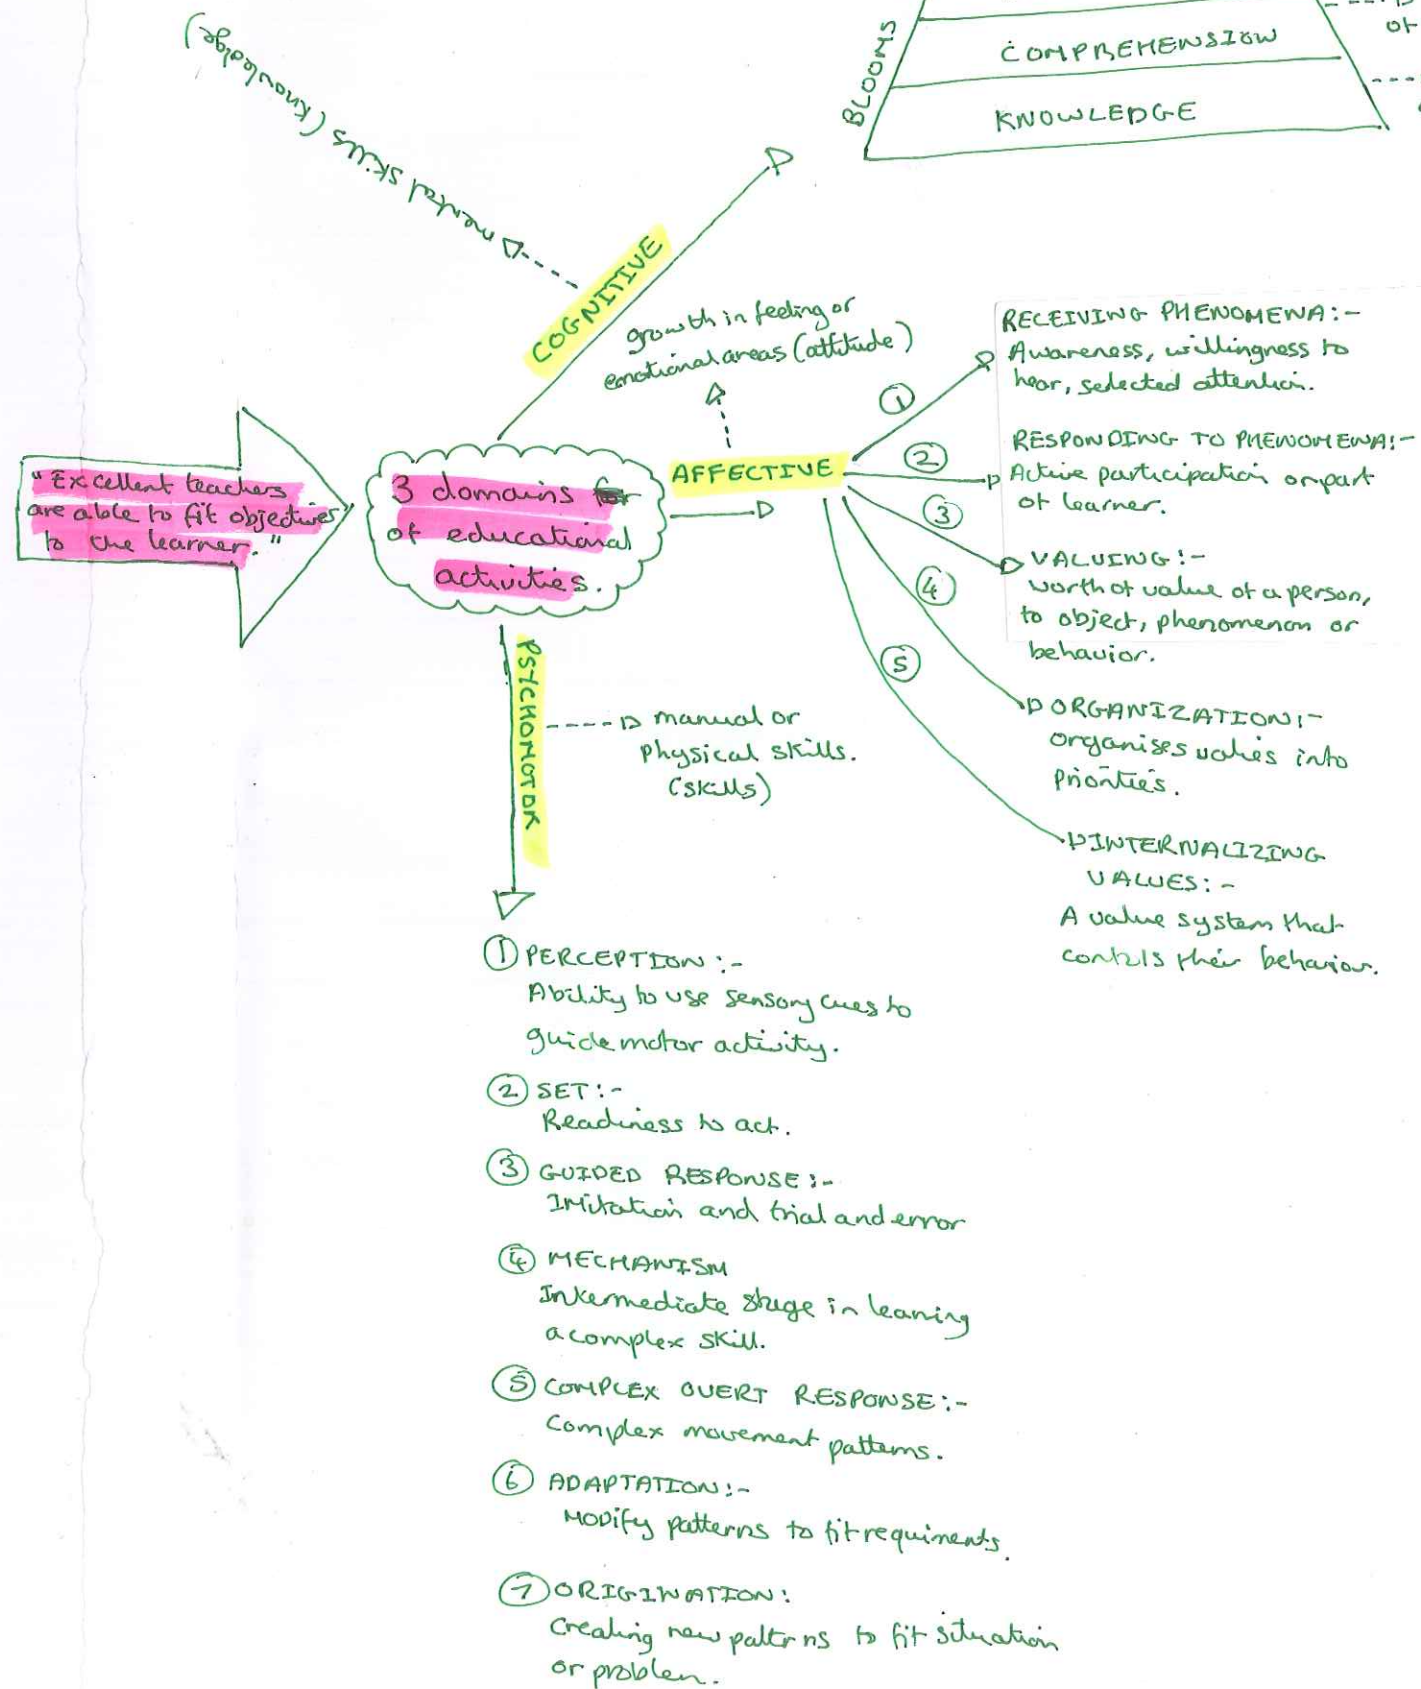 BLOOMS
COMPREHENSION
KNOWLEDGE
of
mental skills (knowledge)
COGNITIVE
growth in feeling or
emotional areas (attitude)
AFFECTIVE
"Excellent teachers
are able to fit objectives
to the learner."
3 domains
of educational
activities.
①
RECEIVING PHENOMENA:-
Awareness, willingness to
hear, selected attention.
②
RESPONDING TO PHENOMENA:-
Active participation on part
of learner.
③
VALUING:-
worth of value of a person,
to object, phenomenon or
behavior.
④
ORGANIZATION:-
organises values into
priorities.
⑤
INTERNALIZING
VALUES:-
A value system that
controls their behavior.
PSYCHOMOTOR
manual or
physical skills.
(skills)
① PERCEPTION:-
Ability to use sensory cues to
guide motor activity.
② SET:-
Readiness to act.
③ GUIDED RESPONSE:-
Imitation and trial and error
④ MECHANISM
Intermediate stage in leaning
a complex skill.
⑤ COMPLEX OVERT RESPONSE:-
Complex movement patterns.
⑥ ADAPTATION:-
Modify patterns to fit requiments.
⑦ ORIGINATION:
Creating new patterns to fit situation
or problem.